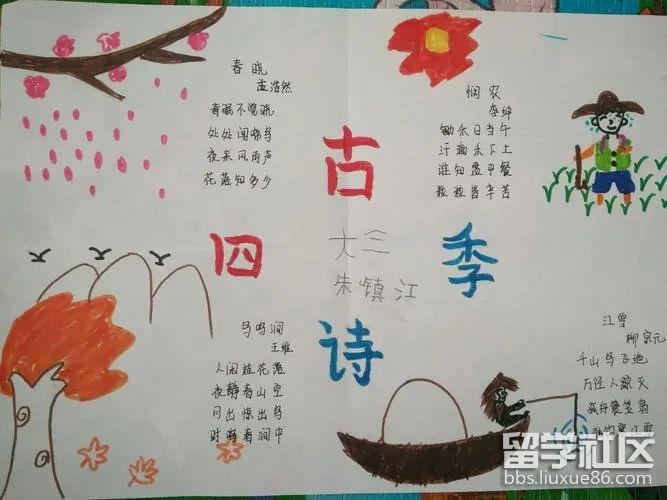 春晓
孟浩然
春眠不觉晓
处处闻啼鸟
夜来风雨声
花落知多少
悯农
李绅
锄禾日当午
汗滴禾下土
谁知盘中餐
粒粒皆辛苦
古
四
季
诗
大三
朱镇江
鸟鸣涧
王维
人闲桂花落
夜静春山空
月出惊山鸟
时鸣春涧中
江雪
柳宗元
千山鸟飞绝
万径人踪灭
孤舟蓑笠翁
独钓寒江雪
留学社区
bbs.liuxue86.com